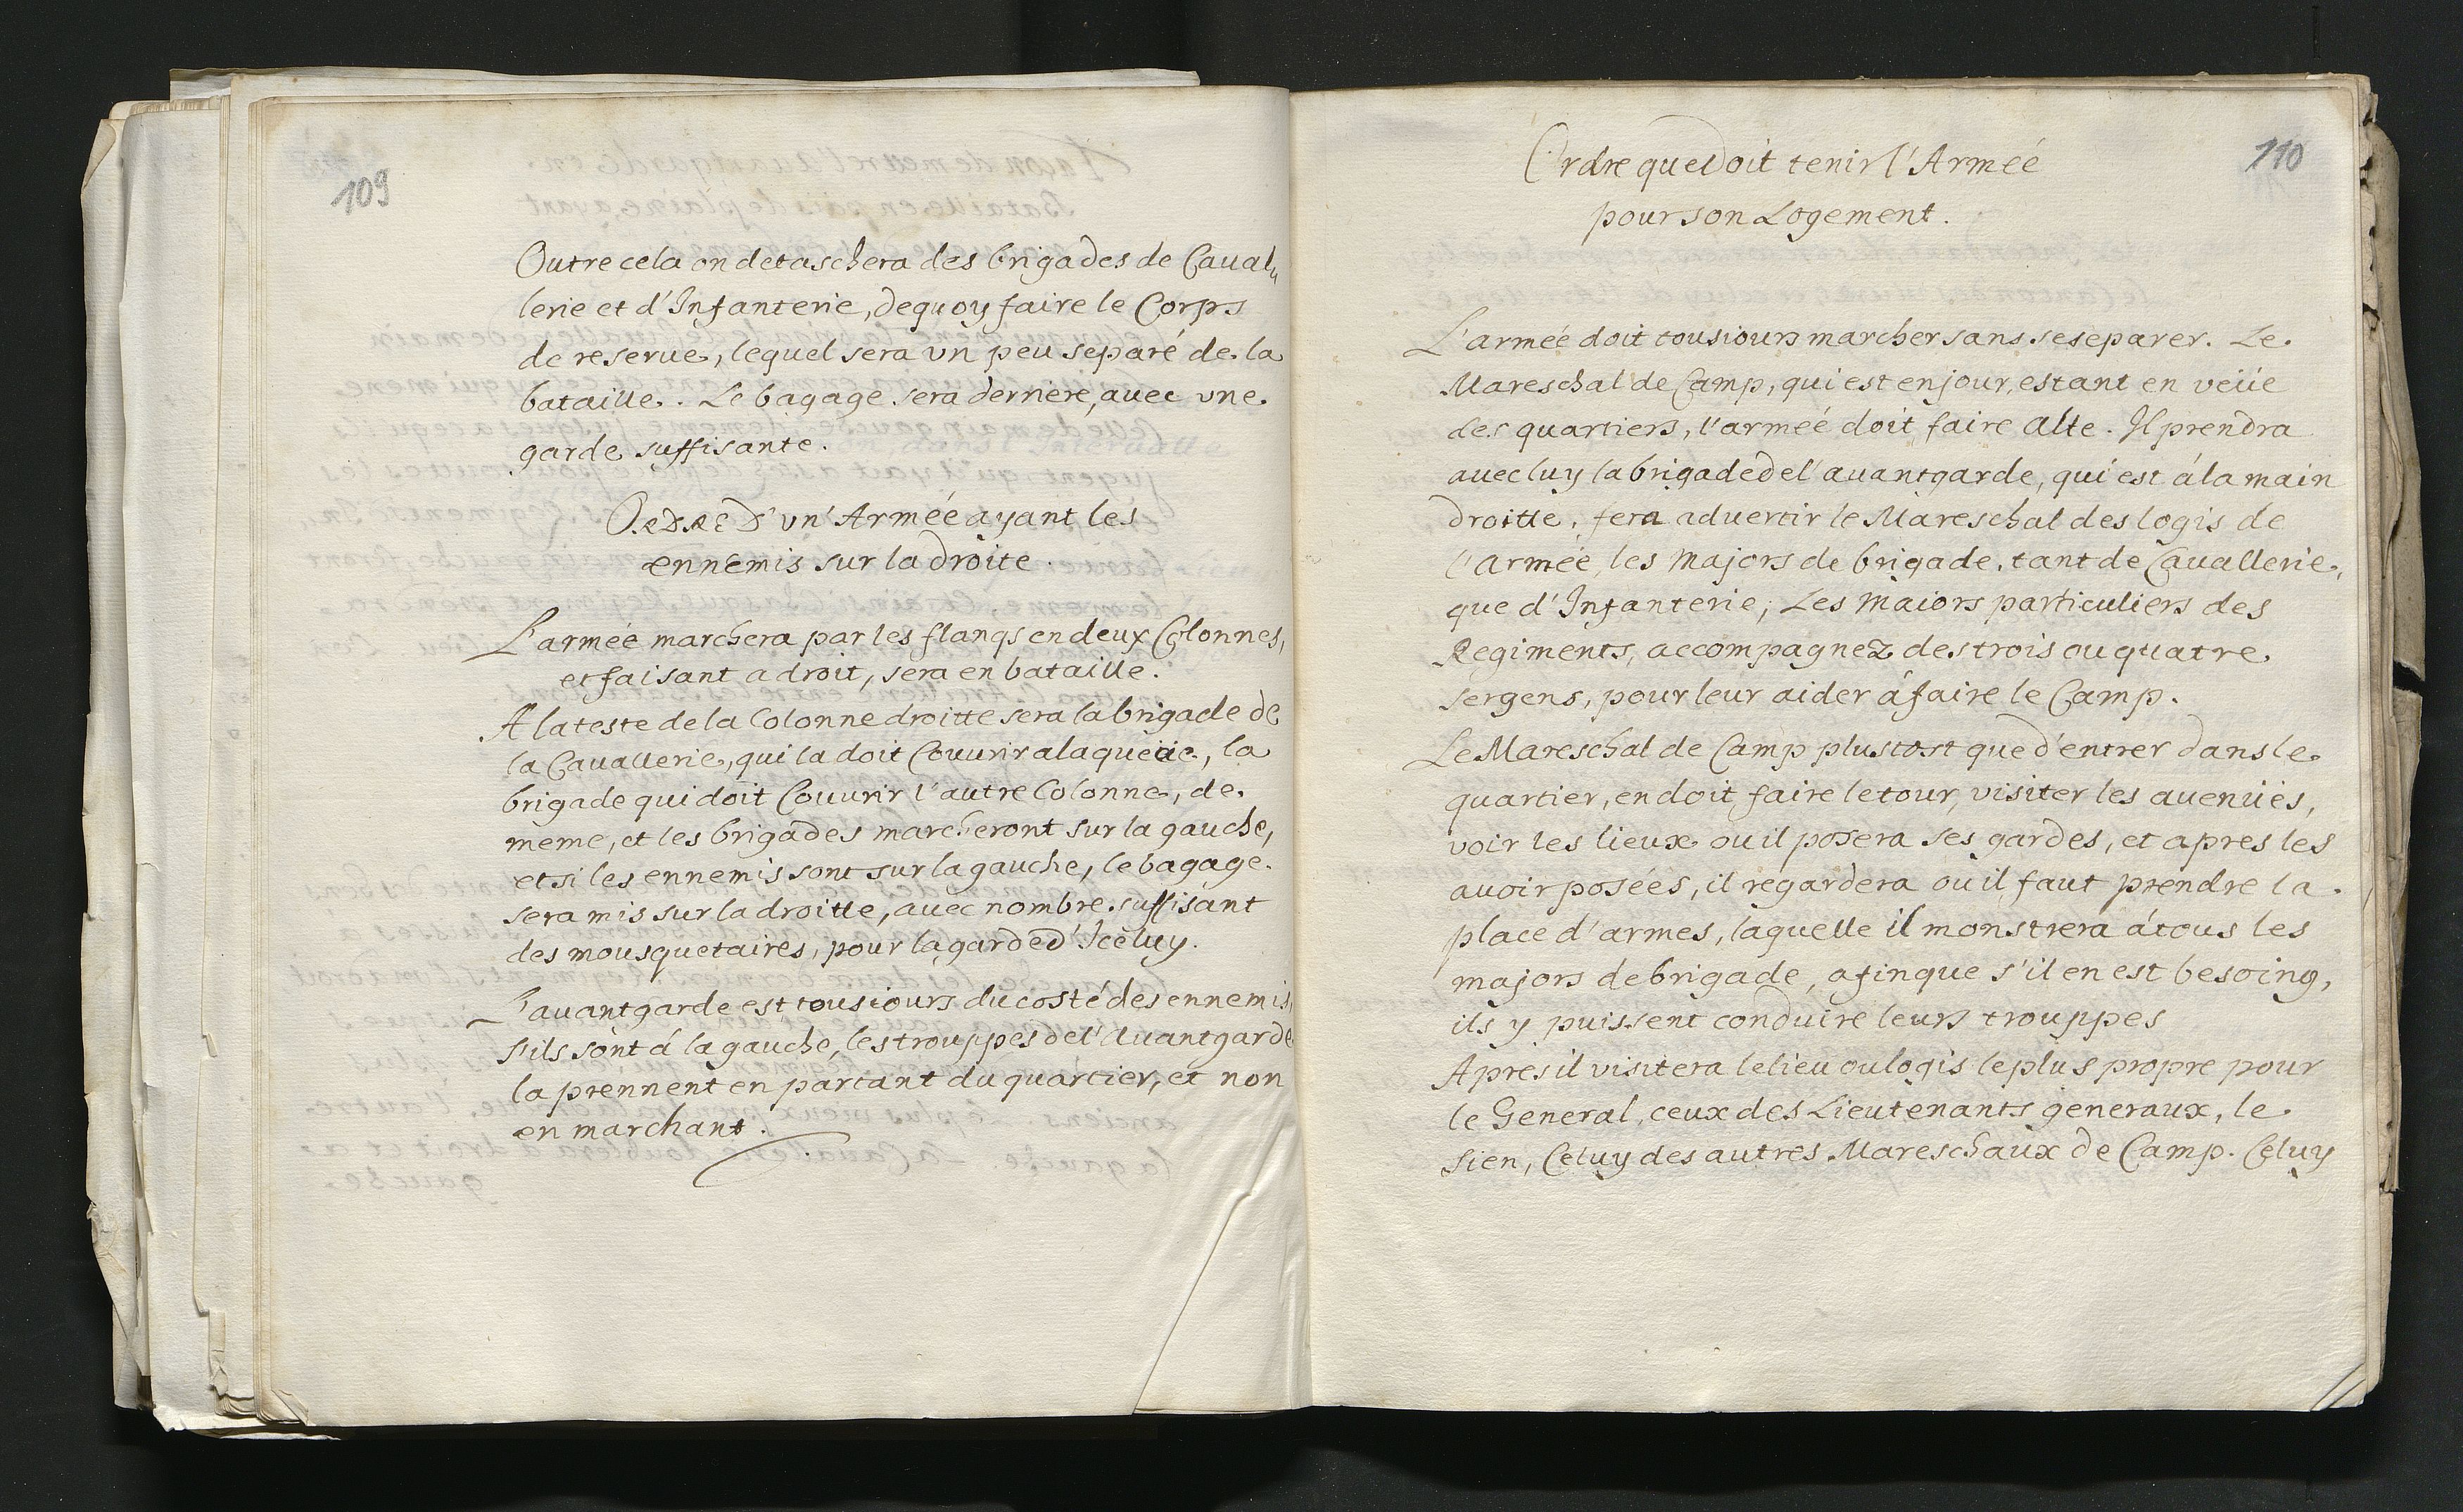 109
Outre cela on detaschera des brigades de Caual„
lerie et d'Infanterie, dequoy faire le Corps
de reserue, lequel sera vn peu separé de la
bataille. Le bagage sera derriere, auec vne
garde suffisante.
ORDRE D'vn'Armée ayant les
ennemis sur la droite.
L'armée marchera par les flanqs en deux Colonnes,
et faisant a droit, sera en bataille.
A la teste de la Colonne droitte sera la brigade de
la Cauallerie, qui la doit Couurir a la queüe, la
brigade qui doit Couurir l'autre Colonne, de
meme, et les brigades marcheront sur la gauche,
et si les ennemis sont sur la gauche, le bagage
sera mis sur la droitte, auec nombre suffisant
des mousquetaires, pour la garde d'Iceluy.
L'auantgarde est tousiours du costé des ennemis,
s'ils sont á la gauche, les trouppes de l'Auantgarde
la prennent en partant du quartier, et non
en marchant.
110
Ordre que doit tenir l'Armée
pour son Logement.
L'armée doit tousiours marcher sans se separer. Le
Mareschal de Camp, qui est en jour, estant en veüe
des quartiers, l'armée doit faire alte. Il prendra
auec luy la brigade de l'auantgarde, qui est á la main
droitte, fera aduertir le Mareschal des logis de
l'armée, les Majors de brigade, tant de Cauallerie,
que d'Infanterie; Les Maiors particuliers des
Regiments, accompagnez des trois ou quatre
sergens, pour leur aider á faire le Camp.
Le Mareschal de Camp plustost que d'entrer dans le
quartier, en doit faire le tour, visiter les auenües,
voir les lieux ou il posera ses gardes, et apres les
auoir posées, il regardera ou il faut prendre la
place d'armes, laquelle il monstrera á tous les
majors de brigade, afin que s'il en est besoing,
ils y puissent conduire leurs trouppes
Apres il visitera le lieu ou logis le plus propre pour
le General, ceux des Lieutenants generaux, le
sien, Celuy des autres Mareschaux de Camp. Celuy